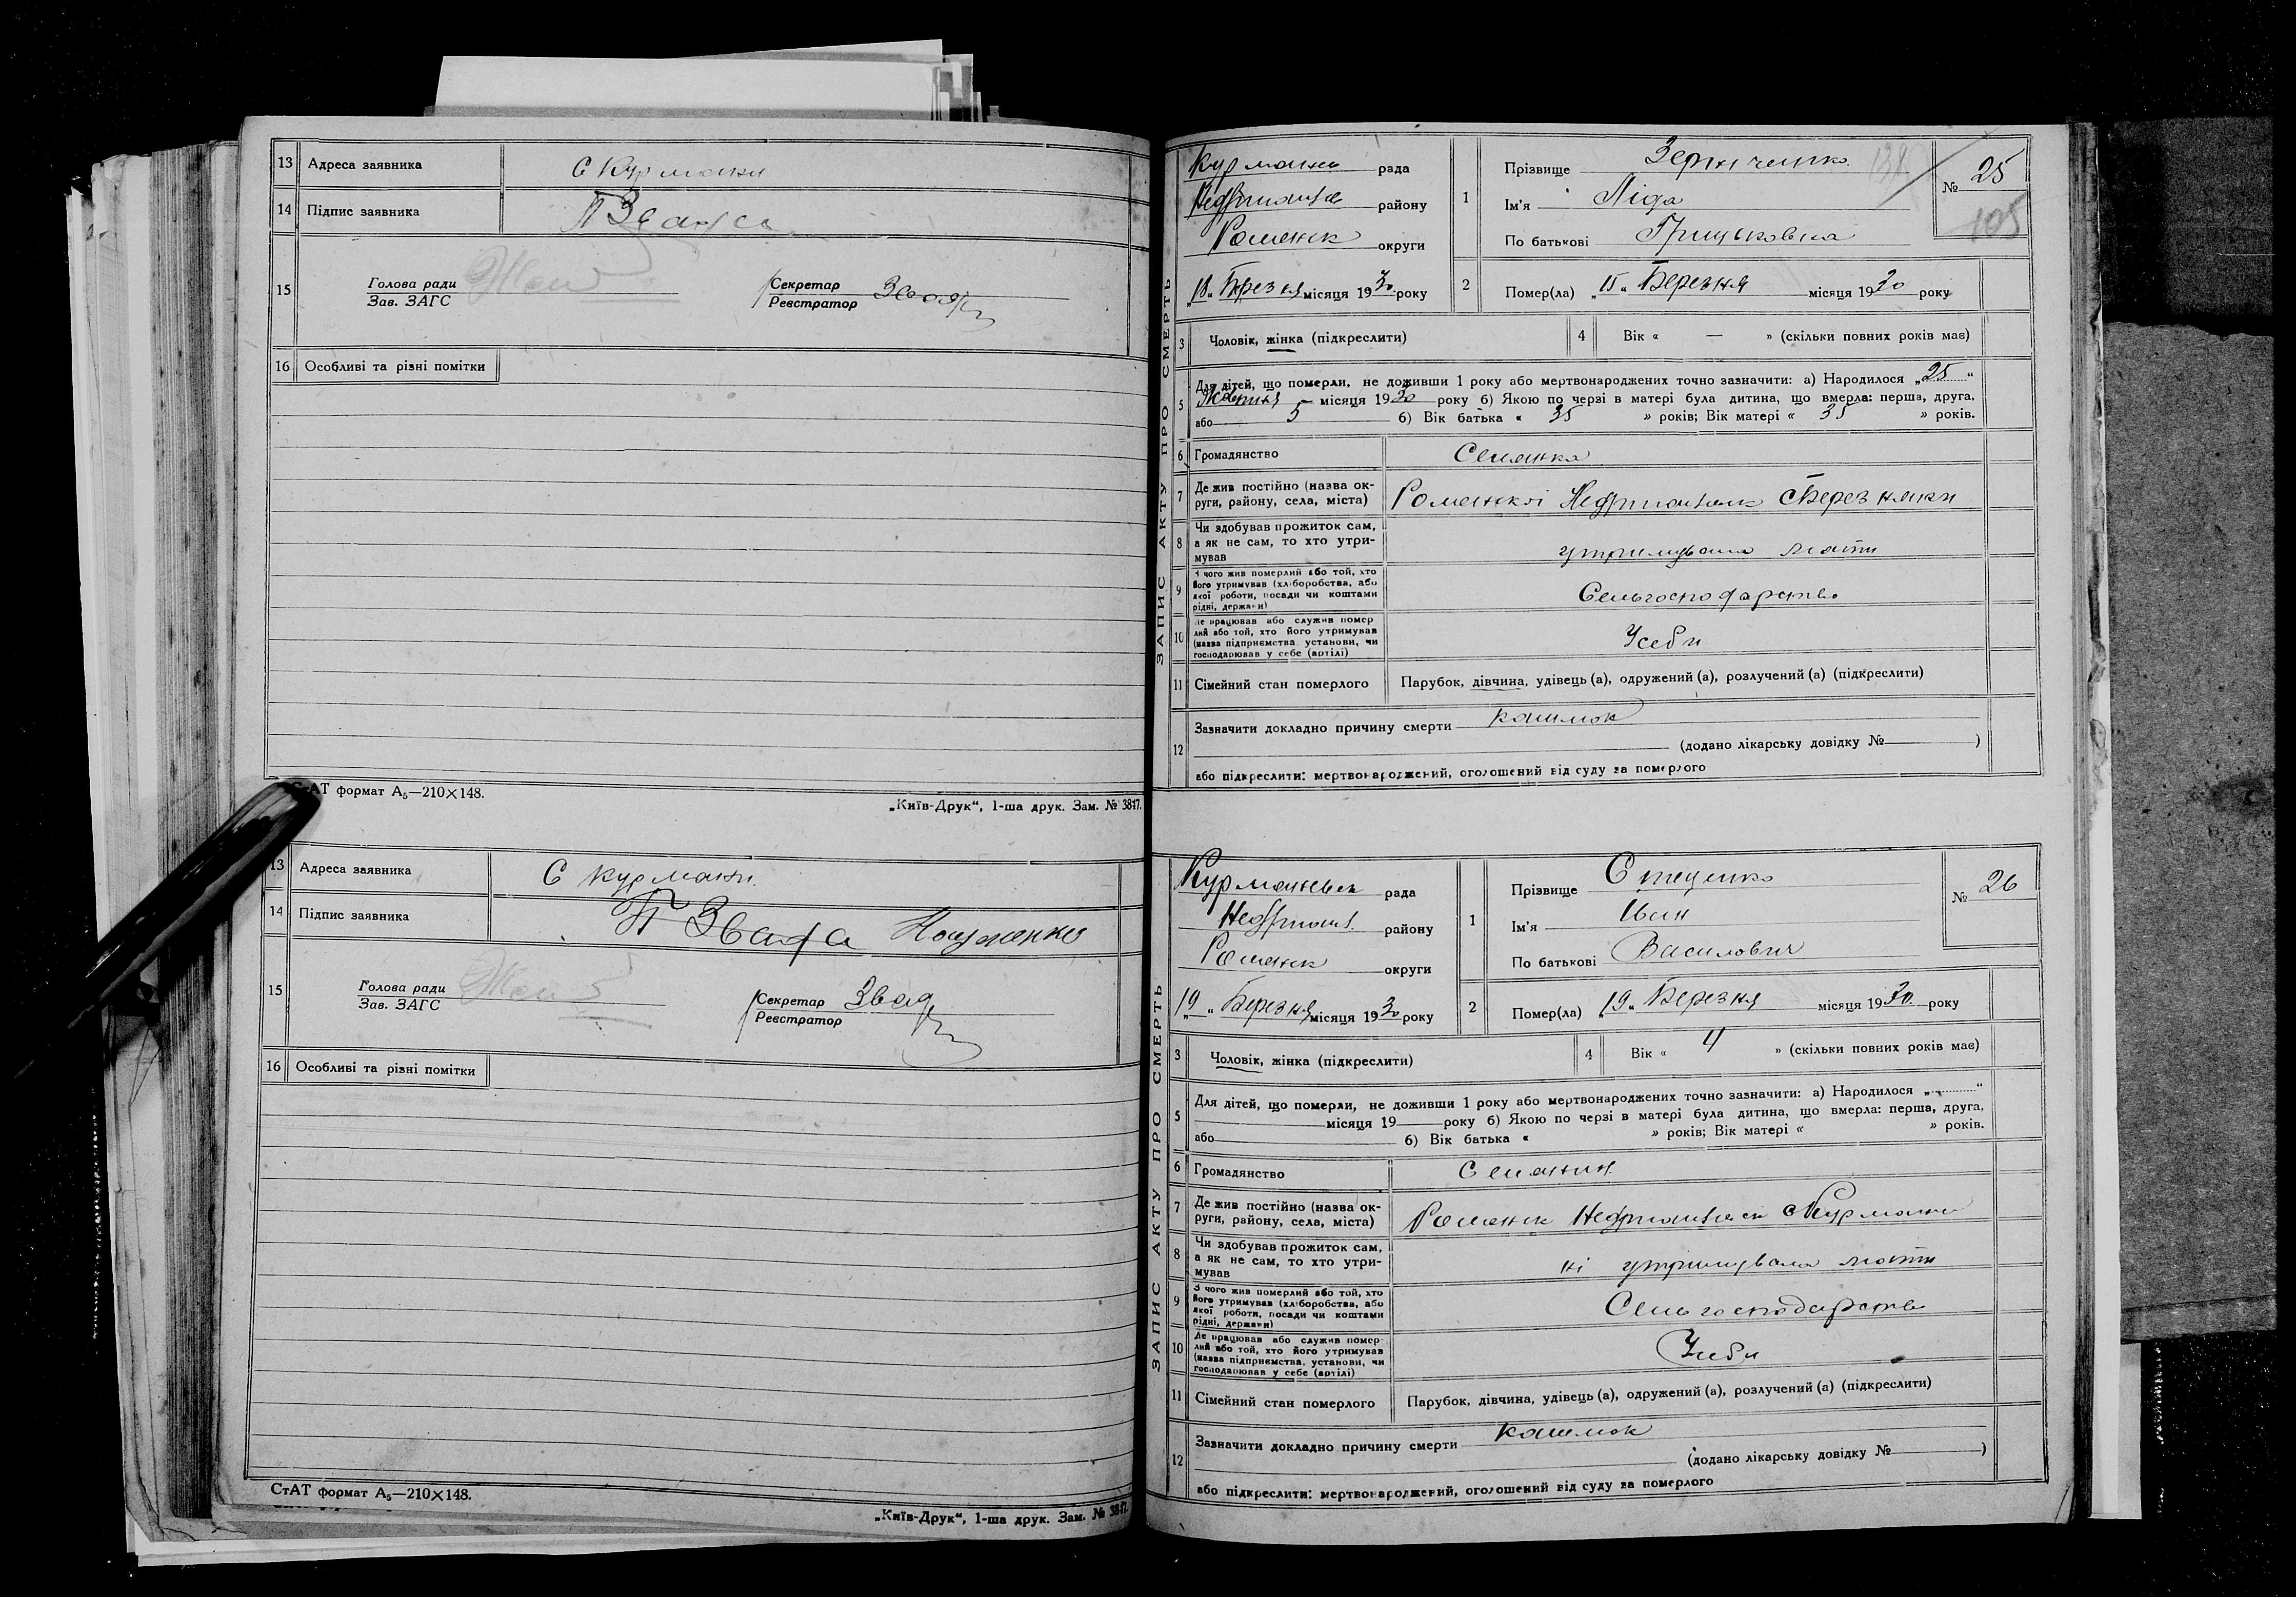 13 Адреса заявника С Курмани
14 Підпис заявника П Звага
15 Голова ради
Зав. ЗАГС
Секретар
Реєстратор Звага
16 Особливі та різні помітки
СтАТ формат А₅—210×148.
„Київ-Друк“, 1-ша друк. Зам. № 3817.
13 Адреса заявника С Курмани
14 Підпис заявника П Звага
15 Голова ради
Зав. ЗАГС
Секретар
Реєстратор Звага
16 Особливі та різні помітки
СтАТ формат А₅—210×148.
„Київ-Друк“, 1-ша друк. Зам. № 3817.
ЗАПИС АКТУ ПРО СМЕРТЬ
Курмани рада
району
Роменск округи
„18“ Березня місяця 1930 року
1 Прізвище
Ім'я Ліда
По батькові Грицьковна
№ 25
105
2 Помер(ла) „15“ Березня місяця 1930 року
3 Чоловік, жінка (підкреслити)
4 Вік « — » (скільки повних років має)
5 Для дітей, що померли, не доживши 1 року або мертвонароджених точно зазначити: а) Народилося „25“
місяця 1930 року б) Якою по черзі в матері була дитина, що вмерла: перша, друга,
або 5 б) Вік батька « 35 » років; Вік матері « 35 » років.
6 Громадянство Селянка
7 Де жив постійно (назва ок-
руги, району, села, міста) С Березняки
8 Чи здобував прожиток сам,
а як не сам, то хто утри-
мував утримувала мати
9 З чого жив померлий або той, хто
його утримував (хліборобства, або
якої роботи, посади чи коштами
рідні, держави) Сельгосподарство
10 Де працював або служив помер
лий або той, хто його утримував
(назва підприємства установи, чи
господарював у себе (артілі) У себи
11 Сімейний стан померлого Парубок, дівчина, удівець (а), одружений (а), розлучений (а) (підкреслити)
12 Зазначити докладно причину смерти кашлюк
(додано лікарську довідку № )
або підкреслити: мертвонароджений, оголошений від суду за померлого
ЗАПИС АКТУ ПРО СМЕРТЬ
Курманевск рада
району
Роменск округи
„19“ Березня місяця 1930 року
1 Прізвище Стеценко
Ім'я Іван
По батькові Василович
№ 26
2 Помер(ла) „19“ Березня місяця 1930 року
3 Чоловік, жінка (підкреслити)
4 Вік « 4 » (скільки повних років має)
5 Для дітей, що померли, не доживши 1 року або мертвонароджених точно зазначити: а) Народилося „ “
місяця 19 року б) Якою по черзі в матері була дитина, що вмерла: перша, друга,
або б) Вік батька « » років; Вік матері « » років.
6 Громадянство Селянин
7 Де жив постійно (назва ок-
руги, району, села, міста) Роменск С Курмани
8 Чи здобував прожиток сам,
а як не сам, то хто утри-
мував ні утримувала мати
9 З чого жив померлий або той, хто
його утримував (хліборобства, або
якої роботи, посади чи коштами
рідні, держави) Сельгосподарство
10 Де працював або служив помер-
лий або той, хто його утримував
(назва підприємства, установи, чи
господарював у себе (артілі) У себи
11 Сімейний стан померлого Парубок, дівчина, удівець (а), одружений (а), розлучений (а) (підкреслити)
12 Зазначити докладно причину смерти кашлюк
(додано лікарську довідку № )
або підкреслити: мертвонароджений, оголошений від суду за померлого